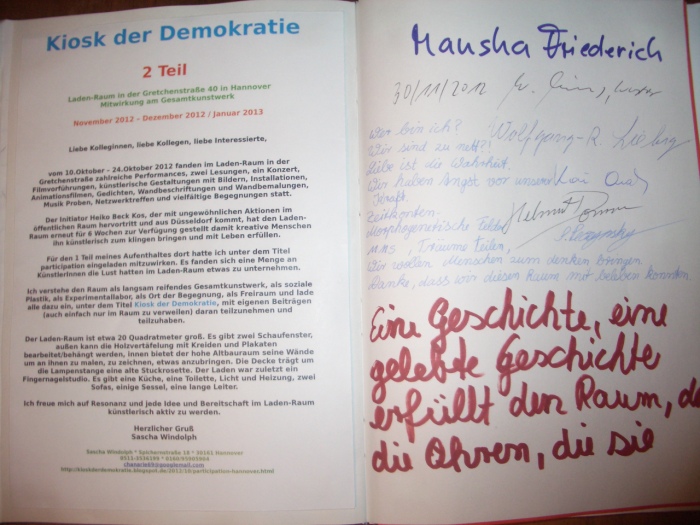 Kiosk der Demokratie
2 Teil
Laden-Raum in der Gretchenstraße 40 in Hannover
Mitwirkung am Gesamtkunstwerk
November 2012 – Dezember 2012 / Januar 2013
Liebe Kolleginnen, liebe Kollegen, liebe Interessierte,
vom 10.Oktober – 24.Oktober 2012 fanden im Laden-Raum in der
Gretchenstraße zahlreiche Performances, zwei Lesungen, ein Konzert,
Filmvorführungen, künstlerische Gestaltungen mit Bildern, Installationen,
Animationsfilmen, Gedichten, Wandbeschriftungen und Wandbemalungen,
Musik Proben, Netzwerktreffen und vielfältige Begegnungen statt.
Der Initiator Heiko Beck Kus, der mit ungewöhnlichen Aktionen im
öffentlichen Raum hervortritt und aus Düsseldorf kommt, hat den Laden-
Raum erneut für 6 Wochen zur Verfügung gestellt damit kreative Menschen
ihn künstlerisch zum klingen bringen und mit Leben erfüllen.
Für den 1 Teil meines Aufenthaltes dort hatte ich unter dem Titel
participation eingeladen mitzuwirken. Es fanden sich eine Menge an
KünstlerInnen die Lust hatten im Laden-Raum etwas zu unternehmen.
Ich verstehe den Raum als langsam reifendes Gesamtkunstwerk, als soziale
Plastik, als Experimentallabor, als Ort der Begegnung, als Freiraum und lade
alle dazu ein, unter dem Titel Kiosk der Demokratie, mit eigenen Beiträgen
(auch einfach nur im Raum zu verweilen) daran teilzunehmen und
teilzuhaben.
Der Laden-Raum ist etwa 20 Quadratmeter groß. Es gibt zwei Schaufenster,
außen kann die Holzvertäfelung mit Kreiden und Plakaten
bearbeitet/behängt werden, innen bietet der hohe Altbauraum seine Wände
um an ihnen zu malen, zu zeichnen, etwas anzubringen. Die Decke trägt um
die Lampenstange eine alte Stuckrosette. Der Laden war zuletzt ein
Fingernagelstudio. Es gibt eine Küche, eine Toilette, Licht und Heizung, zwei
Sofas, einige Sessel, eine lange Leiter.
Ich freue mich auf Resonanz und jede Idee und Bereitschaft im Laden-Raum
künstlerisch aktiv zu werden.
Herzlicher Gruß
Sascha Windolph
Sascha Windolph * Spichernstraße 18 * 30161 Hannover
Mansha Friederich
30/11/2012
Wer bin ich?
Wolfgang-R.
Wir sind zu nett?!
Liebe ist die Wahrheit.
Wir haben Angst vor unserer
Kraft.
Zeitkonten.
Helmut
Morphogenetische Felder
MMS, Träume teilen,
Wir wollen Menschen zum denken bringen
Danke, dass wir diesen Raum mit beleben konnten
Eine Geschichte, eine
gelebte Geschichte
erfüllt den Raum,
die Ohren, die sie